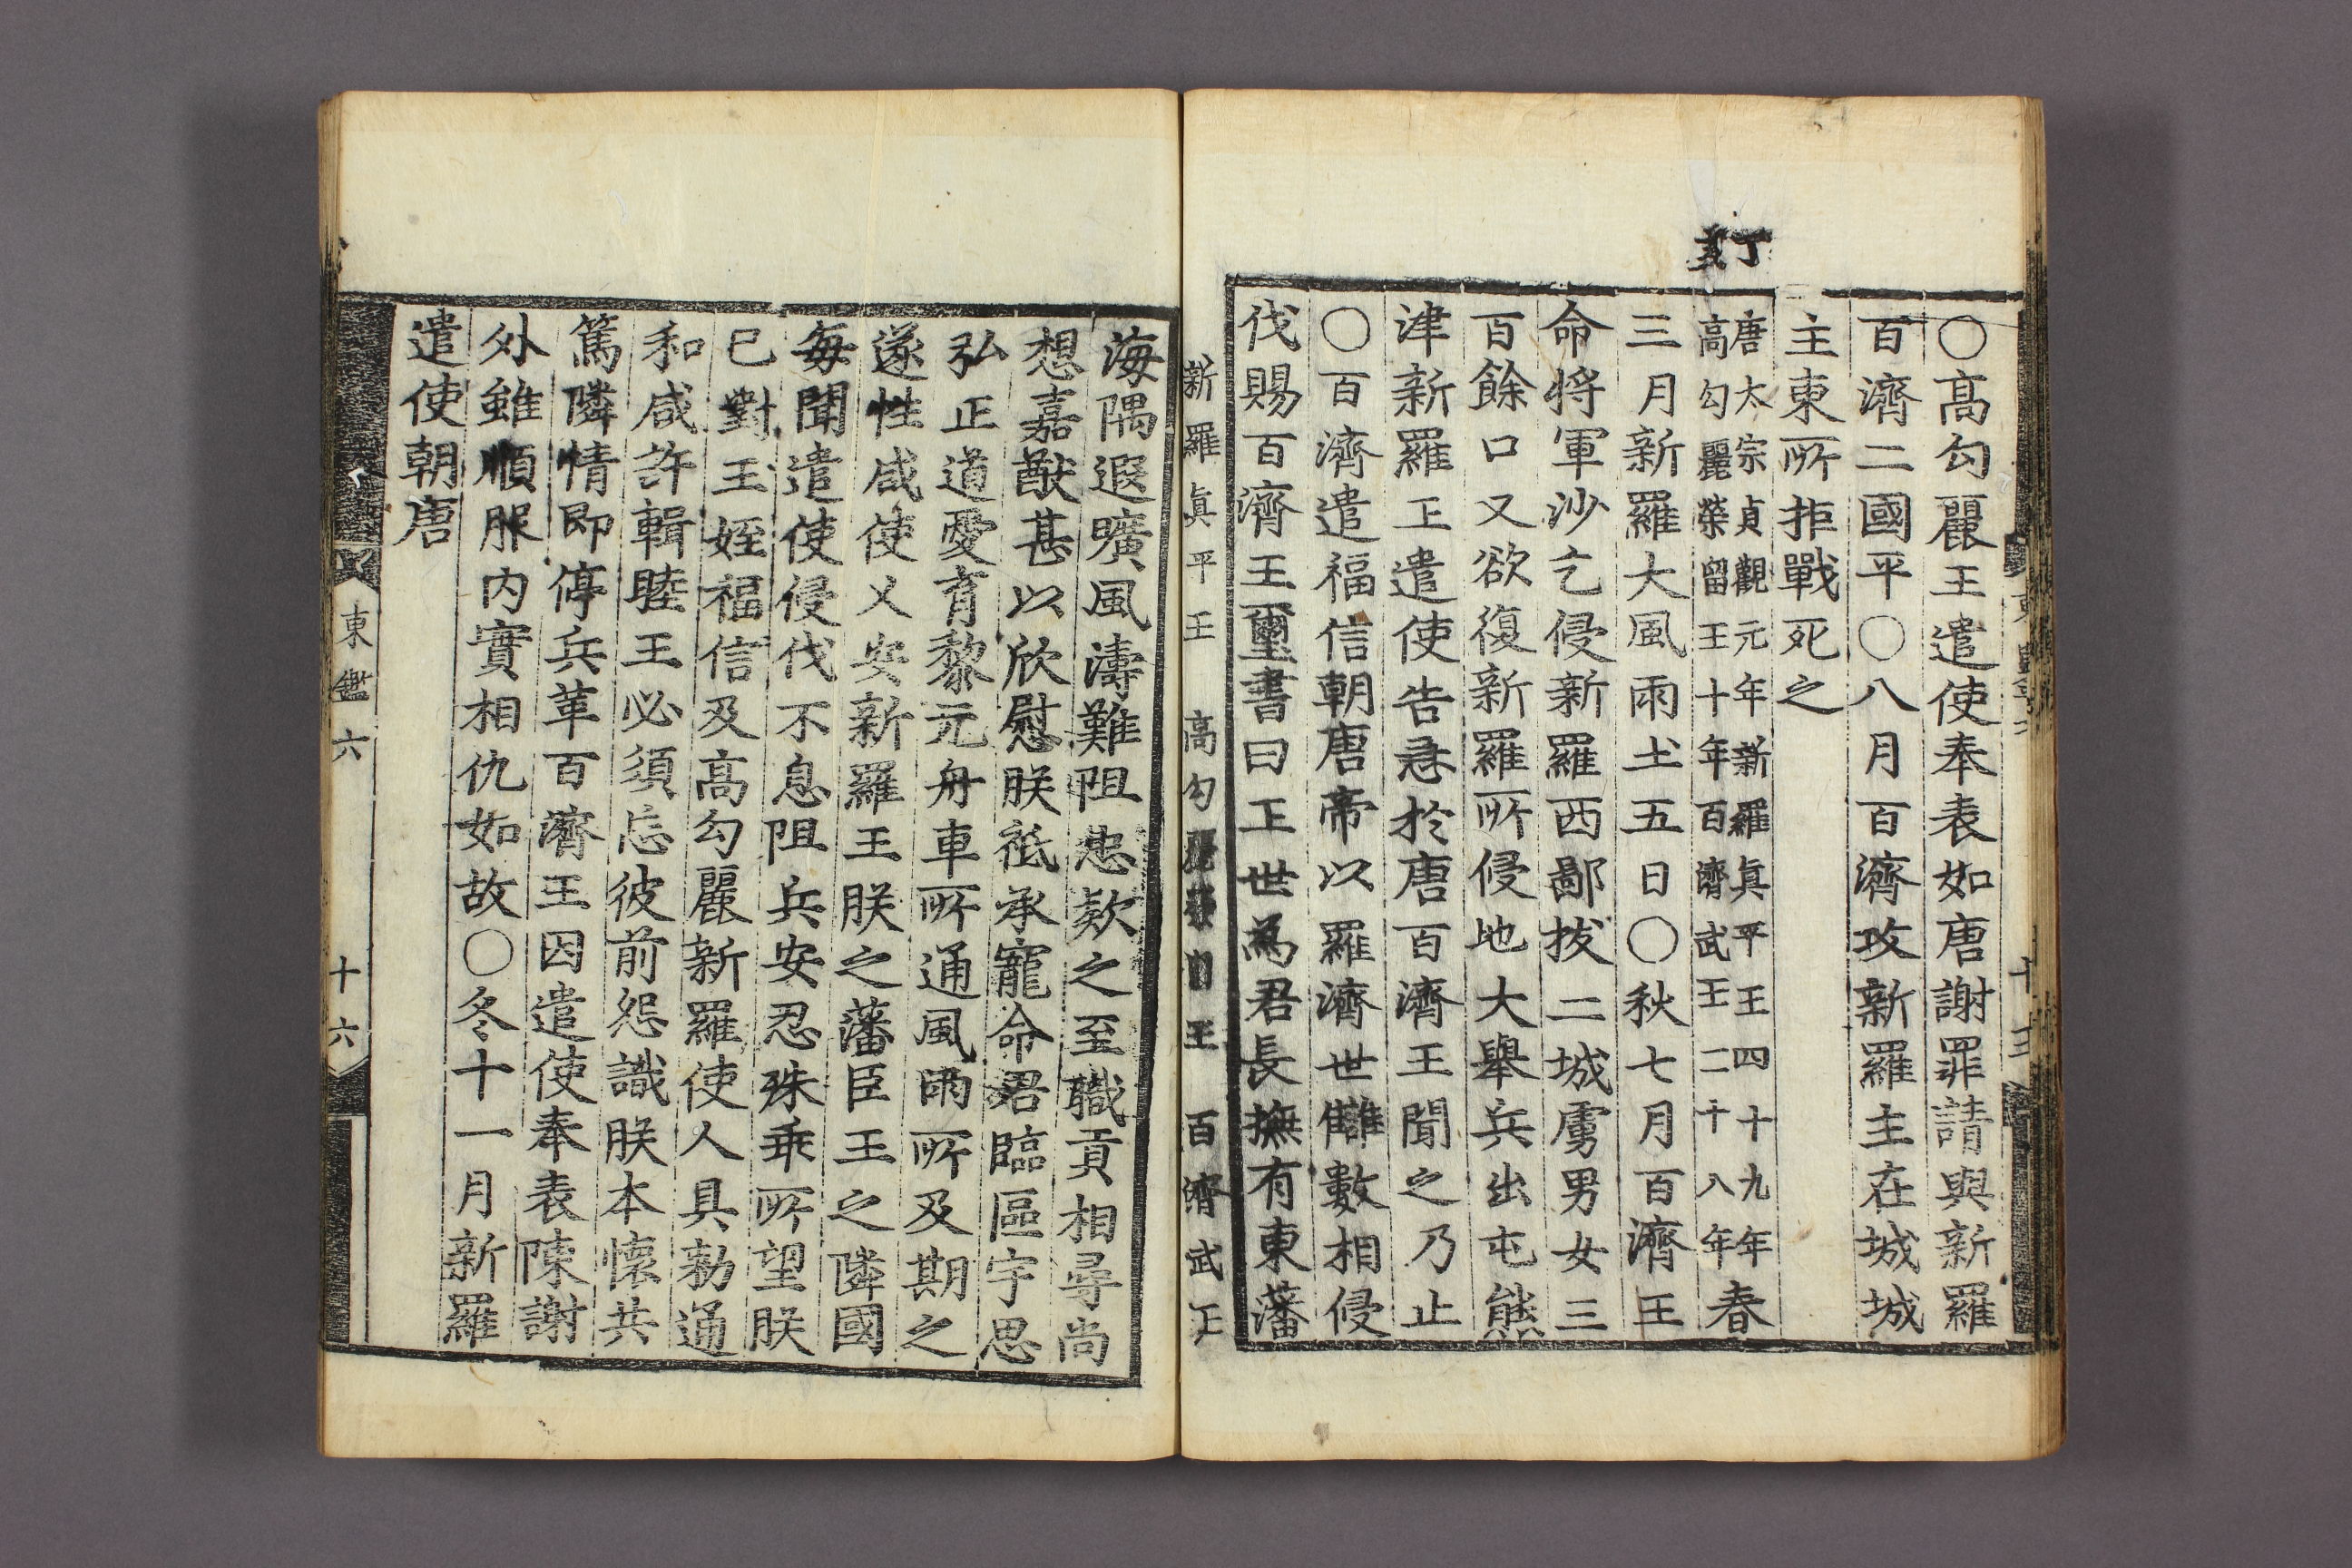 丁亥
○高勾麗王遣使奉表如唐謝罪請與新羅
百濟二國平○八月百濟攻新羅主在城城
主東所拒戰死之
唐太宗貞觀元年新羅眞平王四十九年
高勾麗榮留王十年百濟武王二十八年
春
三月新羅大風雨土五日○秋七月百濟王
命將軍沙乞侵新羅西鄙拔二城虜男女三
百餘口又欲復新羅所侵地大擧兵出屯熊
津新羅王遣使告急於唐百濟王聞之乃止
○百濟遣福信朝唐帝以羅濟世讎數相侵
伐賜百濟王璽書曰王世爲君長撫有東藩
新羅眞平王 高勾麗榮留王 百濟武王
海隅遐曠風濤難阻忠款之至職貢相尋尚
想嘉猷甚以欣慰朕祗承寵命君臨區宇思
弘正道愛育黎元舟車所通風雨所及期之
遂性咸使乂安新羅王朕之藩臣王之隣國
每聞遣使侵伐不息阻兵安忍殊乖所望朕
已對王姪福信及高勾麗新羅使人具勑通
和咸許輯睦王必須忘彼前怨識朕本懷共
篤隣情即停兵革百濟王因遣使奉表陳謝
外雖順服内實相仇如故○冬十一月新羅
遣使朝唐
東鑑六 十六